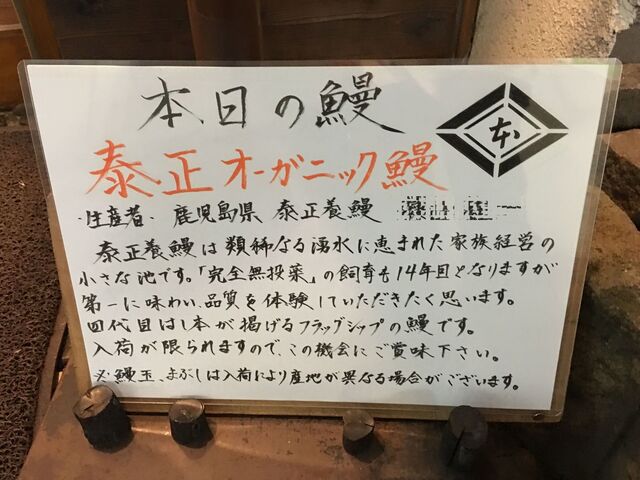 本日の鰻
本
泰正オーガニック鰻
・生産者・ 鹿児島県 泰正養鰻
泰正養鰻は類稀なる湧水に恵まれた家族経営の
小さな池です。「完全無投薬」の飼育も14年目となりますが
第一に味わい、品質を体験していただきたく思います。
四代目はし本が掲げるフラッグシップの鰻です。
入荷が限られますので、この機会にご賞味下さい。
※鰻玉、まぶしは入荷により産地が異なる場合がございます。